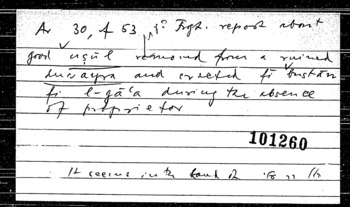 Ar 30, f 53 Frgt. report about
good uṣūl removed from a ruined
duwayra and erected fī bustān
fī l-qāʿa during the absence
of proprietor
101260
It seems in the hand of